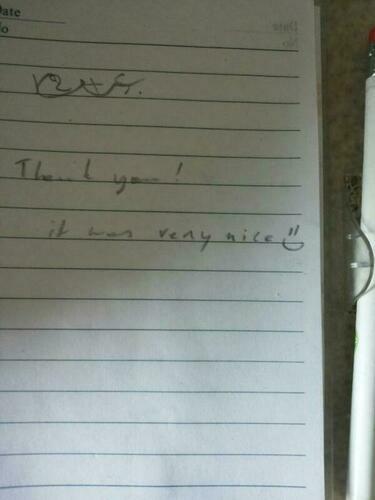 Date
No
Thank you!
it was very nice